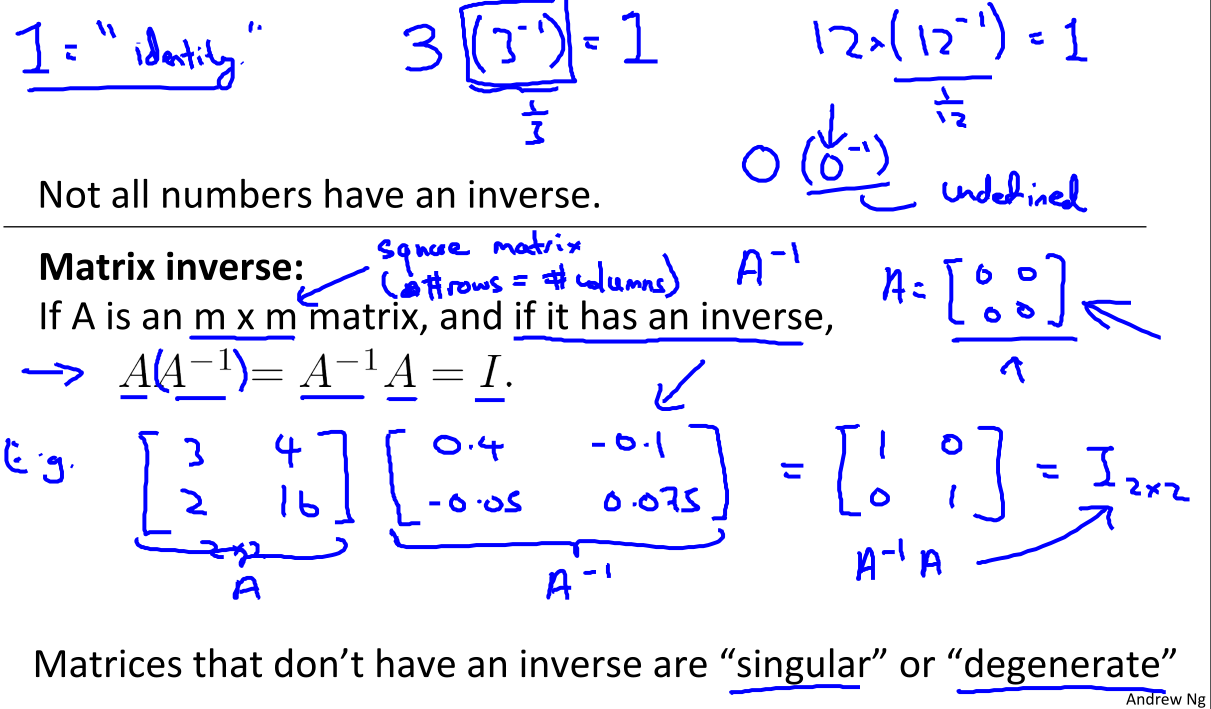 1 = "identity."
3 (3⁻¹) = 1
1/3
12 × (12⁻¹) = 1
1/12
0 (0⁻¹)
undefined
Not all numbers have an inverse.
Matrix inverse:
square matrix
(#rows = #columns)
A⁻¹
A = [0 0
0 0]
If A is an m x m matrix, and if it has an inverse,
→ A(A⁻¹) = A⁻¹A = I.
E.g. [3 4 [0.4 -0.1 = [1 0 = I₂ₓ₂
2 16] -0.05 0.075] 0 1]
2x2
A A⁻¹ A⁻¹A
Matrices that don’t have an inverse are “singular” or “degenerate”
Andrew Ng